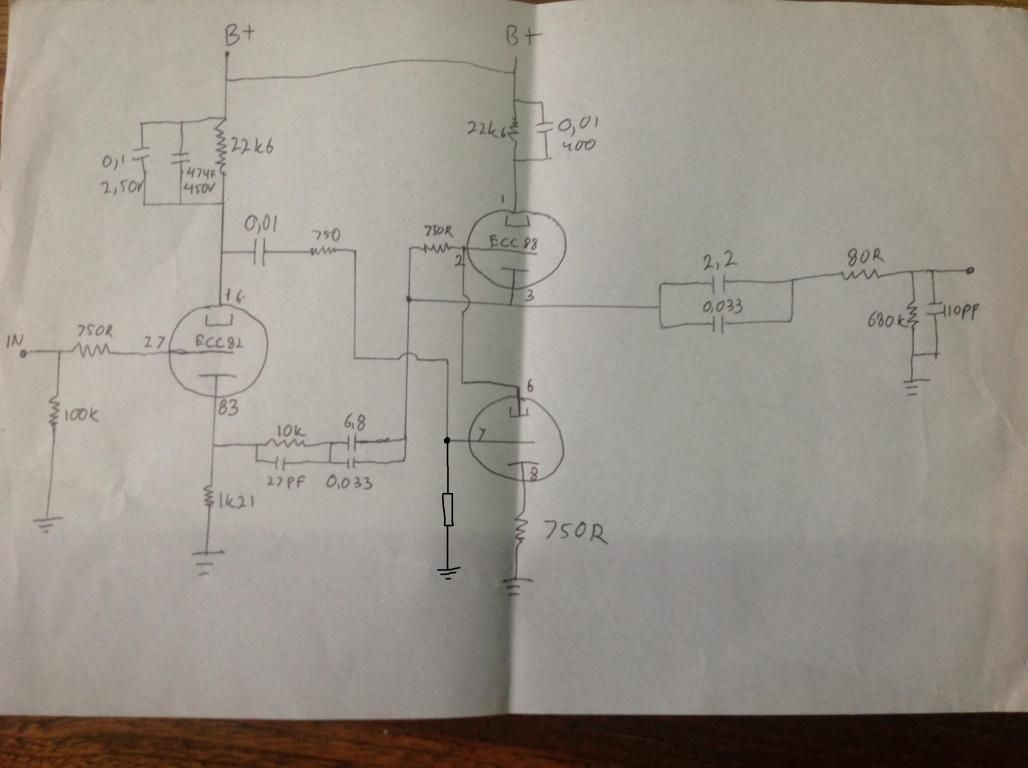 B+
B+
22k6
0,1
2,50V
47µF
450V
22k6
0,01
400
0,01
750
750R
1
ECC 88
2
3
2,2
0,033
80R
680k
110PF
IN
750R
27
16
ECC82
83
100k
10k
6,8
27PF
0,033
1k21
6
7
8
750R